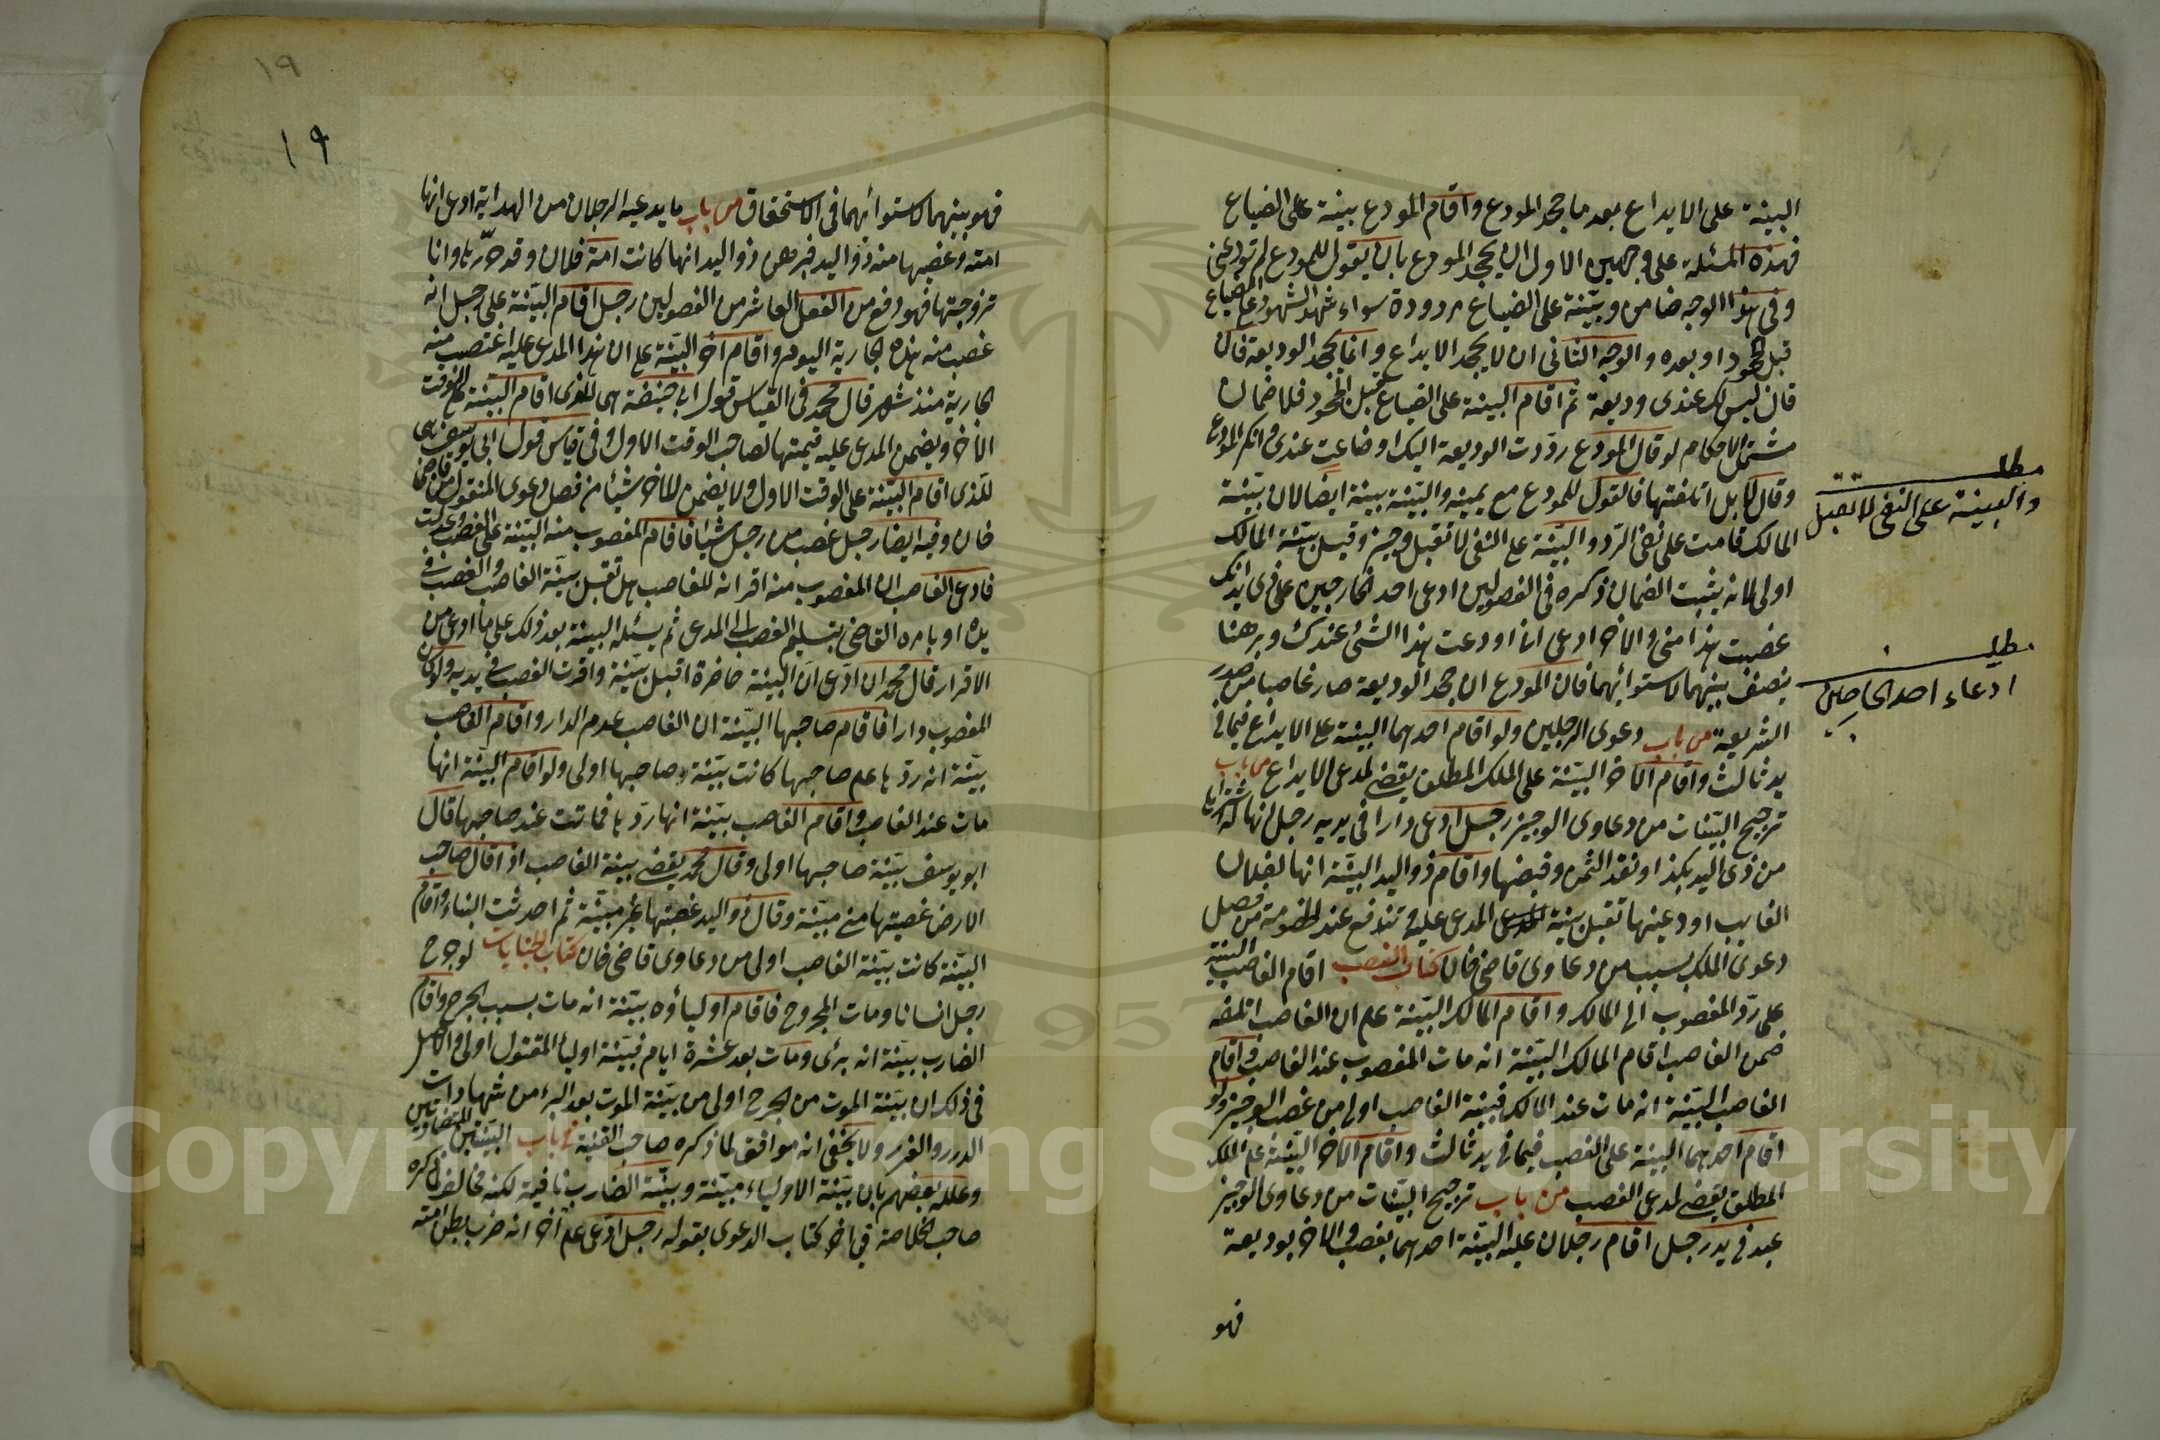 البينة على الايداع بعد ما جحد المودع واقام المودع بينة على الضياع
فهذه المسئلة على وجهين الاول ان يجحد المودع بان يقول للمودع لم تودعنى
وفى هذا الوجه ضامن وبينة على الضياع مردودة سواء شهد الشهود على الضياع
قبل الجحود او بعده والوجه الثانى ان لا يجحد الايداع وانما يجحد الوديعة فان
قال ليس لك عندى وديعة ثم اقام البينة على الضياع قبل الجحود فلا ضمان
مشتمل الاحكام لو قال المودع رددت الوديعة اليك او ضاعت عندى وانكر المودع
وقال لا بل اتلفتها فالقول للمودع مع يمينه والبينة بينة ايضا لان بينة
المالك قامت على نفى الرد والبينة على النفى لا تقبل وجيز وقيل بينة المالك
اولى لانه يثبت الضمان ذكره فى الفصولين ادعى احد الخارجين على ذى يد انك
غصبت هذا منى والاخر ادعى انا اودعت هذا الشئ عندك وبرهنا
ينصف بينهما لاستوائهما فان المودع ان جحد الوديعة صار غاصبا من صدر
الشريعة من باب دعوى الرجلين ولو اقام احدهما البينة على الايداع فيما فى
يد ثالث واقام الاخر البينة على الملك المطلق يقضى لمدعى الايداع من باب
ترجيح البينات من دعاوى الوجيز رجل ادعى دارا فى يديه رجل انها له اشتراها
من ذى اليد بكذا ونقد الثمن وقبضها واقام ذو اليد البينة انها لفلان
الغايب اودعينها تقبل بينة المدعى عليه وتندفع عنه الخصومة من فصل
دعوى الملك بسبب من دعاوى قاضى خان كتاب الغصب اقام الغاصب البينة
على رد المغصوب الى المالك واقام المالك البينة على ان الغاصب اتلفه
ضمن الغاصب اقام المالك البينة انه مات المغصوب عند الغاصب واقام
الغاصب البينة انه مات عند المالك فبينة الغاصب اولى من غصب الوجيز ولو
اقام احدهما البينة على الغصب فيما فى يد ثالث واقام الاخر البينة على الملك
المطلق يقضى لمدعى الغصب من باب ترجيح البينات من دعاوى الوجيز
عبد فى يد رجل اقام رجلان عليه البينة احدهما بغصب والاخر بوديعة
فهو
مطلب
والبينة على النفى لا تقبل
مطلب
ادعاء احد الخارجين
١٩
١٩
فهو بينهما لاستوائهما فى الاستحقاق من باب ما يدعيه الرجلان من الهداية ادعى انها
امته وغصبها منه ذو اليد فبرهن ذو اليد انها كانت امة فلان وقد حررها وانا
تزوجتها فهو دفع من الفصل العاشر من الفصولين رجل اقام البينة على رجل انه
غصب منه هذه الجارية اليوم واقام اخر البينة على ان هذا المدعى عليه اغتصب منه
الجارية منذ شهر قال محمد فى القياس قول ابى حنيفة هى للذى اقام البينة على الوقت
الاخر ويضمن المدعى عليه قيمتها لصاحب الوقت الاول وفى قياس قول ابى يوسف هى
للذى اقام البينة على الوقت الاول ولا يضمن للاخر شيئا من فصل دعوى المنقول من قاضى
خان وفيه ايضا رجل غصب من رجل شيئا فاقام المغصوب منه البينة على الغصب
فادعى الغاصب ان المغصوب منه اقر انه للغاصب هل تقبل بينة الغاصب والغصب فى
يده او يامره القاضى بتسليم الغصب الى المدعى ثم يسئله البينة بعد ذلك على ما ادعى من
الاقرار قال محمد ان ادعى ان البينة حاضرة اقبل بينة واقرت الغصب فى يديه ولو كان
المغصوب دارا فاقام صاحبها البينة ان الغاصب هدم الدار واقام الغاصب
بينة انه ردها على صاحبها كانت بينة صاحبها اولى ولو اقام البينة انها
مات عند الغاصب واقام الغاصب بينة انها ردها فماتت عند صاحبها قال
ابو يوسف بينة صاحبها اولى وقال محمد يقضى ببينة الغاصب اذا قال صاحب
الارض غصبتها منى مبنية وقال ذو اليد غصبتها غير مبنية ثم احدثت البناء واقام
البينة كانت بينة الغاصب اولى من دعاوى قاضى خان كتاب الجنايات لو جرح
رجل انسانا ومات المجروح فاقام اولياؤه بينة انه مات بسبب الجرح واقام
الضارب بينة انه برئ ومات بعد عشرة ايام فبينة اولياء المقتول اولى
فى ذلك ان بينة الموت من الجرح اولى من بينة الموت بعد البرء من شهادات
الدرر والغرر ولا يخفى انه موافق لما ذكره صاحب القنية فى باب البينتين المتضادتين
وعلله بعضهم بان بينة الاولياء مبينة وبينة الضارب نافية لكنه مخالف لما ذكره
صاحب الخلاصة فى اخر كتاب الدعوى بقوله رجل ادعى على آخر انه ضرب بطن امته
Copyright © King Saud University
1957